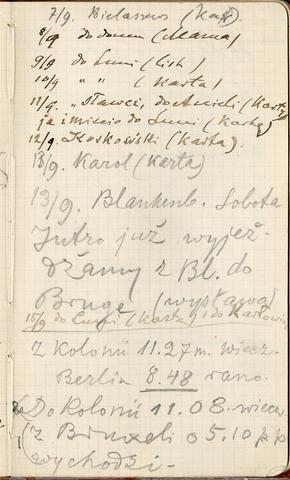 7/9. Bielassews (Karta).
8/9 do domu (Mama)
9/9 do Luni (list)
10/9 " " (Karta)
11/9. Sławci, do Anieli (Karty
ja i mienio do Luni (Karty)
12/9. Kuskowski (Karta).
13/9. Karol (Karta)
13/9. Blankenb. Sobota
Jutro już wyjeż-
dżamy z Bl. do
Bruge (wystawa)
15/9 do Luni (Karta) i do Karłowicz
Z Kolonii 11.27 m. wiecz.
Berlin 8.48 rano.
Do Kolonii 11.08. wiecz.
(z Bruxeli o 5.10 pp
wychodzi -